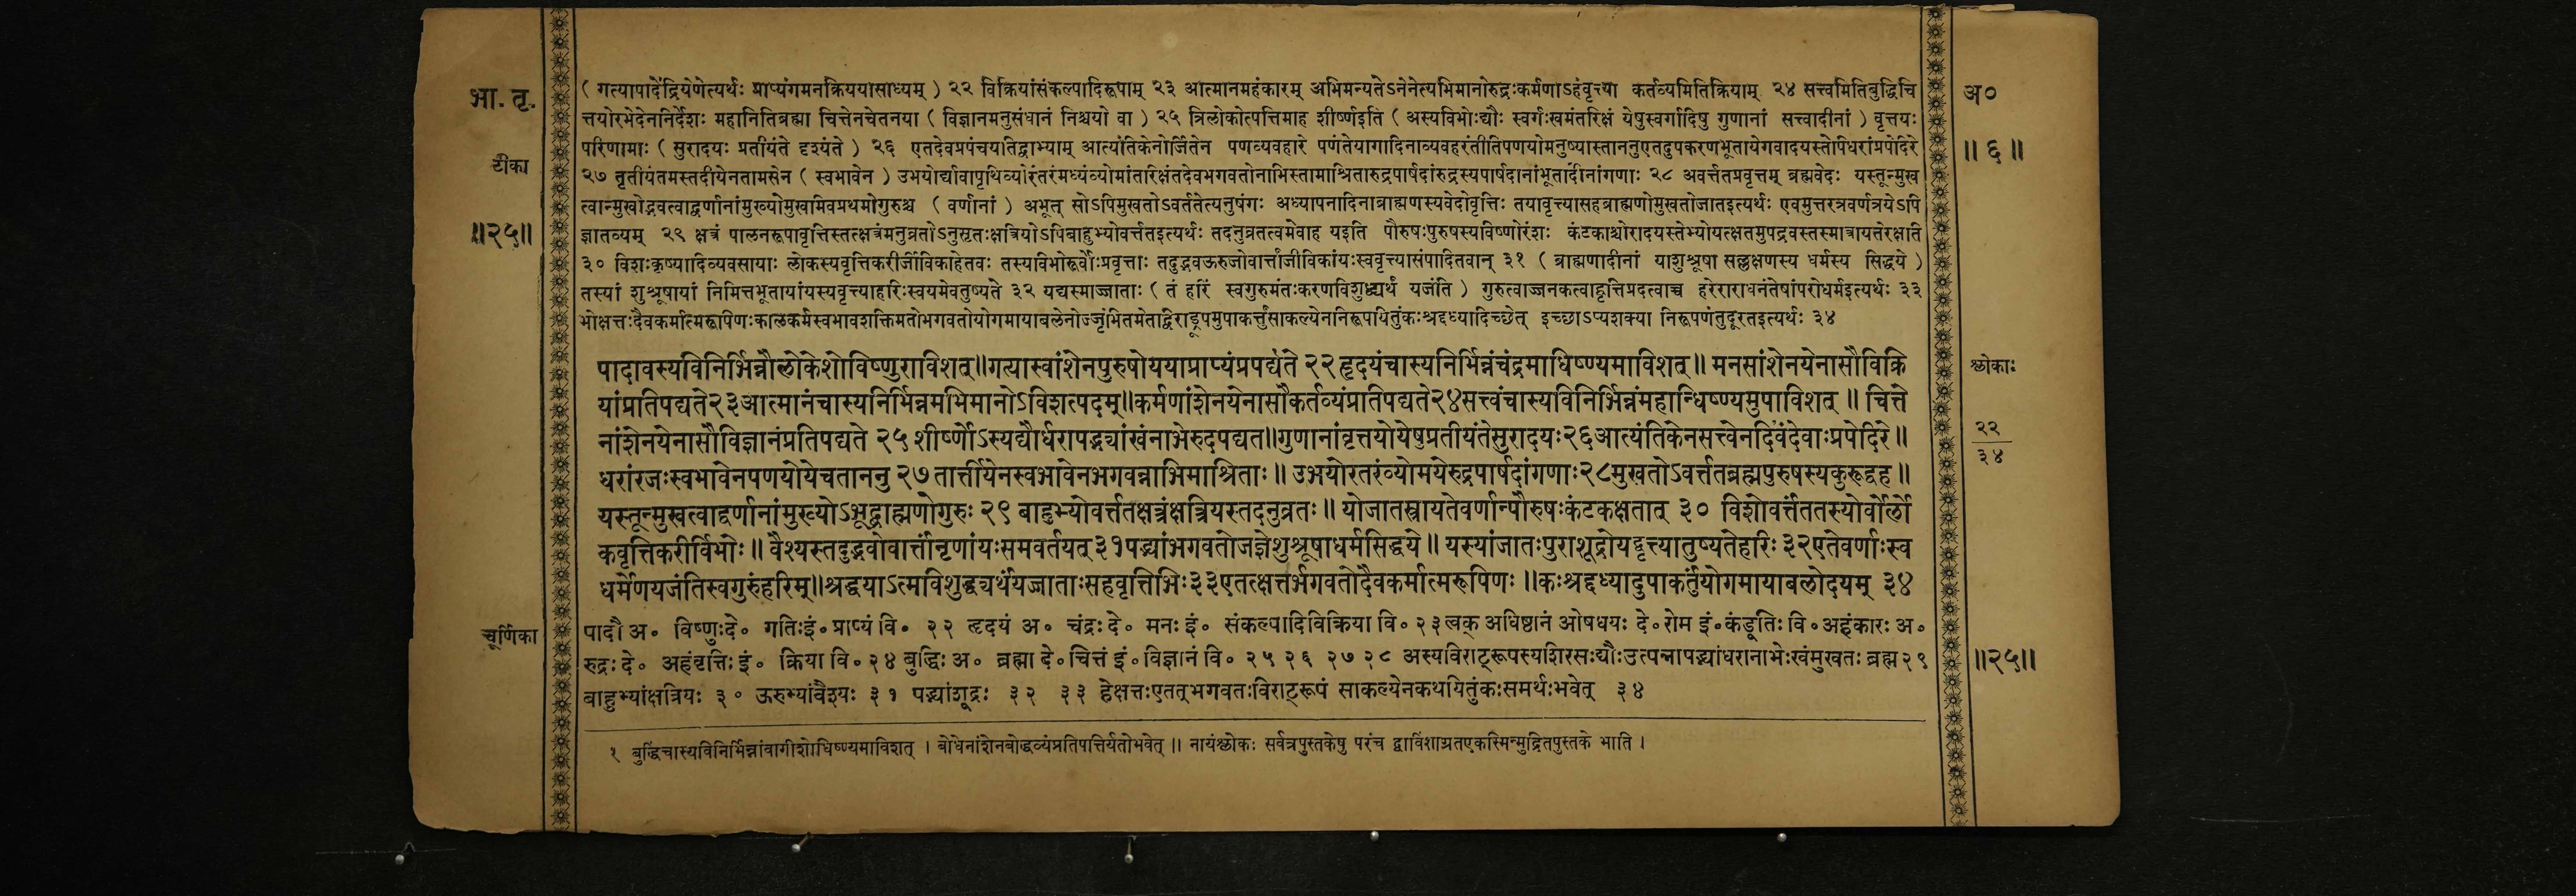 भा. तृ.
टीका
॥२५॥
( गत्यापादेंद्रियेणेत्यर्थः प्राप्यंगमनक्रिययासाध्यम् ) २२ विक्रियांसंकल्पादिरूपाम् २३ आत्मानमहंकारम् अभिमन्यतेऽनेनेत्यभिमानोरुद्रःकर्मणाऽहंवृत्त्या कर्तव्यमितिक्रियाम् २४ सत्त्वमितिबुद्धिचि
त्तयोरभेदेननिर्देशः महानितिब्रह्मा चित्तेनचेतनया ( विज्ञानमनुसंधानं निश्चयो वा ) २५ त्रिलोकोत्पत्तिमाह शीर्ष्णइति ( अस्यविभोःद्यौः स्वर्गःखमंतरिक्षं येषुस्वर्गादिषु गुणानां सत्त्वादीनां ) वृत्तयः
परिणामाः ( सुरादयः प्रतीयंते दृश्यंते ) २६ एतदेवप्रपंचयतिद्वाभ्याम् आत्यंतिकेनोर्जितेन पणव्यवहारे पणंतेयागादिनाव्यवहरंतीतिपणयोमनुष्यास्ताननुएतदुपकरणभूतायेगवादयस्तेपिधरांप्रपेदिरे
२७ तृतीयंतमस्तदीयेनतामसेन ( स्वभावेन ) उभयोर्द्यावापृथिव्योरंतरंमध्यंव्योमांतरिक्षंतदेवभगवतोनाभिस्तामाश्रितारुद्रपार्षदांरुद्रस्यपार्षदानांभूतादीनांगणाः २८ अवर्त्ततप्रवृत्तम् ब्रह्मवेदः यस्तून्मुख
त्वान्मुखोद्भवत्वाद्वर्णानांमुख्योमुखमिवप्रथमोगुरुश्च ( वर्णानां ) अभूत् सोऽपिमुखतोऽवर्ततेत्यनुषंगः अध्यापनादिनाब्राह्मणस्यवेदोवृत्तिः तयावृत्त्यासहब्राह्मणोमुखतोजातइत्यर्थः एवमुत्तरत्रवर्णत्रयेऽपि
ज्ञातव्यम् २९ क्षत्रं पालनरूपावृत्तिस्तत्क्षत्रंमनुव्रतोऽनुसृतःक्षत्रियोऽपिबाहुभ्योवर्त्ततइत्यर्थः तदनुव्रतत्वमेवाह यइति पौरुषःपुरुषस्यविष्णोरंशः कंटकाश्चोरादयस्तेभ्योयत्क्षतमुपद्रवस्तस्मात्रायतेरक्षति
३० विशःकृष्यादिव्यवसायाः लोकस्यवृत्तिकरीर्जीविकाहेतवः तस्यविभोरूर्वोःप्रवृत्ताः तदुद्भवऊरुजोवार्त्तांजीविकांयःस्ववृत्त्यासंपादितवान् ३१ ( ब्राह्मणादीनां याशुश्रूषा सल्लक्षणस्य धर्मस्य सिद्धये )
तस्यां शुश्रूषायां निमित्तभूतायांयस्यवृत्त्याहरिःस्वयमेवतुष्यते ३२ यद्यस्माज्जाताः ( तं हरिं स्वगुरुमंतःकरणविशुद्ध्यर्थं यजंति ) गुरुत्वाज्जनकत्वाद्वृत्तिप्रदत्वाच्च हरेराराधनंतेषांपरोधर्मइत्यर्थः ३३
भोक्षत्तःदैवकर्मात्मरूपिणःकालकर्मस्वभावशक्तिमतोभगवतोयोगमायाबलेनोज्जृंभितमेतद्विराड्रूपमुपाकर्त्तुंसाकल्येननिरूपयितुंकःश्रद्दध्यादिच्छेत् इच्छाऽप्यशक्या निरूपणंतुदूरतइत्यर्थः ३४
पादावस्यविनिर्भिन्नौलोकेशोविष्णुराविशत्॥गत्यास्वांशेनपुरुषोययाप्राप्यंप्रपद्यते २२ हृदयंचास्यनिर्भिन्नंचंद्रमाधिष्ण्यमाविशत्॥ मनसांशेनयेनासौविक्रि
यांप्रतिपद्यते२३आत्मानंचास्यनिर्भिन्नमभिमानोऽविशत्पदम्॥कर्मणांशेनयेनासौकर्तव्यंप्रतिपद्यते२४सत्त्वंचास्यविनिर्भिन्नंमहान्धिष्ण्यमुपाविशत् ॥ चित्ते
नांशेनयेनासौविज्ञानंप्रतिपद्यते २५ शीर्ष्णोऽस्यद्यौर्धरापद्भ्यांखंनाभेरुदपद्यत॥गुणानांवृत्तयोयेषुप्रतीयंतेसुरादयः२६आत्यंतिकेनसत्त्वेनदिवंदेवाःप्रपेदिरे॥
धरांरजःस्वभावेनपणयोयेचताननु २७ तार्त्तीयेनस्वभावेनभगवन्नाभिमाश्रिताः॥ उभयोरतरंव्योमयेरुद्रपार्षदांगणाः२८मुखतोऽवर्त्ततब्रह्मपुरुषस्यकुरूद्वह॥
यस्तून्मुखत्वाद्वर्णानांमुख्योऽभूद्ब्राह्मणोगुरुः २९ बाहुभ्योवर्त्ततक्षत्रंक्षत्रियस्तदनुव्रतः॥ योजातस्त्रायतेवर्णान्पौरुषःकंटकक्षतात् ३० विशोवर्त्तंततस्योर्वोर्लो
कवृत्तिकरीर्विभोः॥ वैश्यस्तदुद्भवोवार्त्तांनृणांयःसमवर्तयत्३१पद्भ्यांभगवतोजज्ञेशुश्रूषाधर्मसिद्धये॥ यस्यांजातःपुराशूद्रोयद्वृत्त्यातुष्यतेहरिः३२एतेवर्णाःस्व
धर्मेणयजंतिस्वगुरुंहरिम्॥श्रद्धयाऽत्मविशुद्ध्यर्थंयज्जाताःसहवृत्तिभिः३३एतत्क्षत्तर्भगवतोदैवकर्मात्मरूपिणः॥कःश्रद्दध्यादुपाकर्तुंयोगमायाबलोदयम् ३४
चूर्णिका
पादौ अ॰ विष्णुःदे॰ गतिःइं॰प्राप्यं वि॰ २२ हृदयं अ॰ चंद्रः दे॰ मनः इं॰ संकल्पादिविक्रिया वि॰ २३त्वक् अधिष्ठानं ओषधयः दे॰रोम इं॰कंडूतिः वि॰अहंकारः अ॰
रुद्रः दे॰ अहंवृत्तिः इं॰ क्रिया वि॰२४ बुद्धिः अ॰ ब्रह्मा दे॰चित्तं इं॰विज्ञानं वि॰ २५ २६ २७ २८ अस्यविराट्रूपस्यशिरसःद्यौःउत्पन्नापद्भ्यांधरानाभेःखंमुखतः ब्रह्म२९
बाहुभ्यांक्षत्रियः ३० ऊरुभ्यांवैश्यः ३१ पद्भ्यांशूद्रः ३२ ३३ हेक्षत्तःएतत्भगवतःविराट्रूपं साकल्येनकथयितुंकःसमर्थःभवेत् ३४
१ बुद्धिंचास्यविनिर्भिन्नांवागीशोधिष्ण्यमाविशत् । बोधेनांशेनबोद्धव्यंप्रतिपत्तिर्यतोभवेत् ॥ नायंश्लोकः सर्वत्रपुस्तकेषु परंच द्वाविंशाग्रतएकस्मिन्मुद्रितपुस्तके भाति ।
अ०
॥ ६ ॥
श्लोकाः
२२
३४
॥२५॥